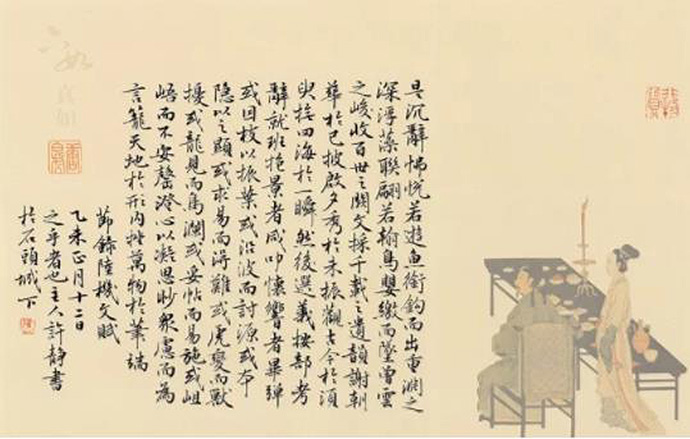 是沉辭怫悅若遊魚銜鈎而出重淵之
深浮藻聯翩若翰鳥嬰繳而墜曾雲
之峻收百世之闕文採千載之遺韻謝朝
華於已披啟夕秀於未振觀古今於須
臾撫四海於一瞬然後選義按部考
辭就班抱景者咸叩懷響者畢彈
或因枝以振葉或沿波而討源或本
隱以之顯或求易而得難或虎變而獸
擾或龍見而鳥瀾或妥帖而易施或岨
峿而不安罄澄心以凝思眇眾慮而為
言籠天地於形內挫萬物於筆端
節錄陸機文賦
乙未正月十二日
之乎者也主人許静書
於石頭城下
六如